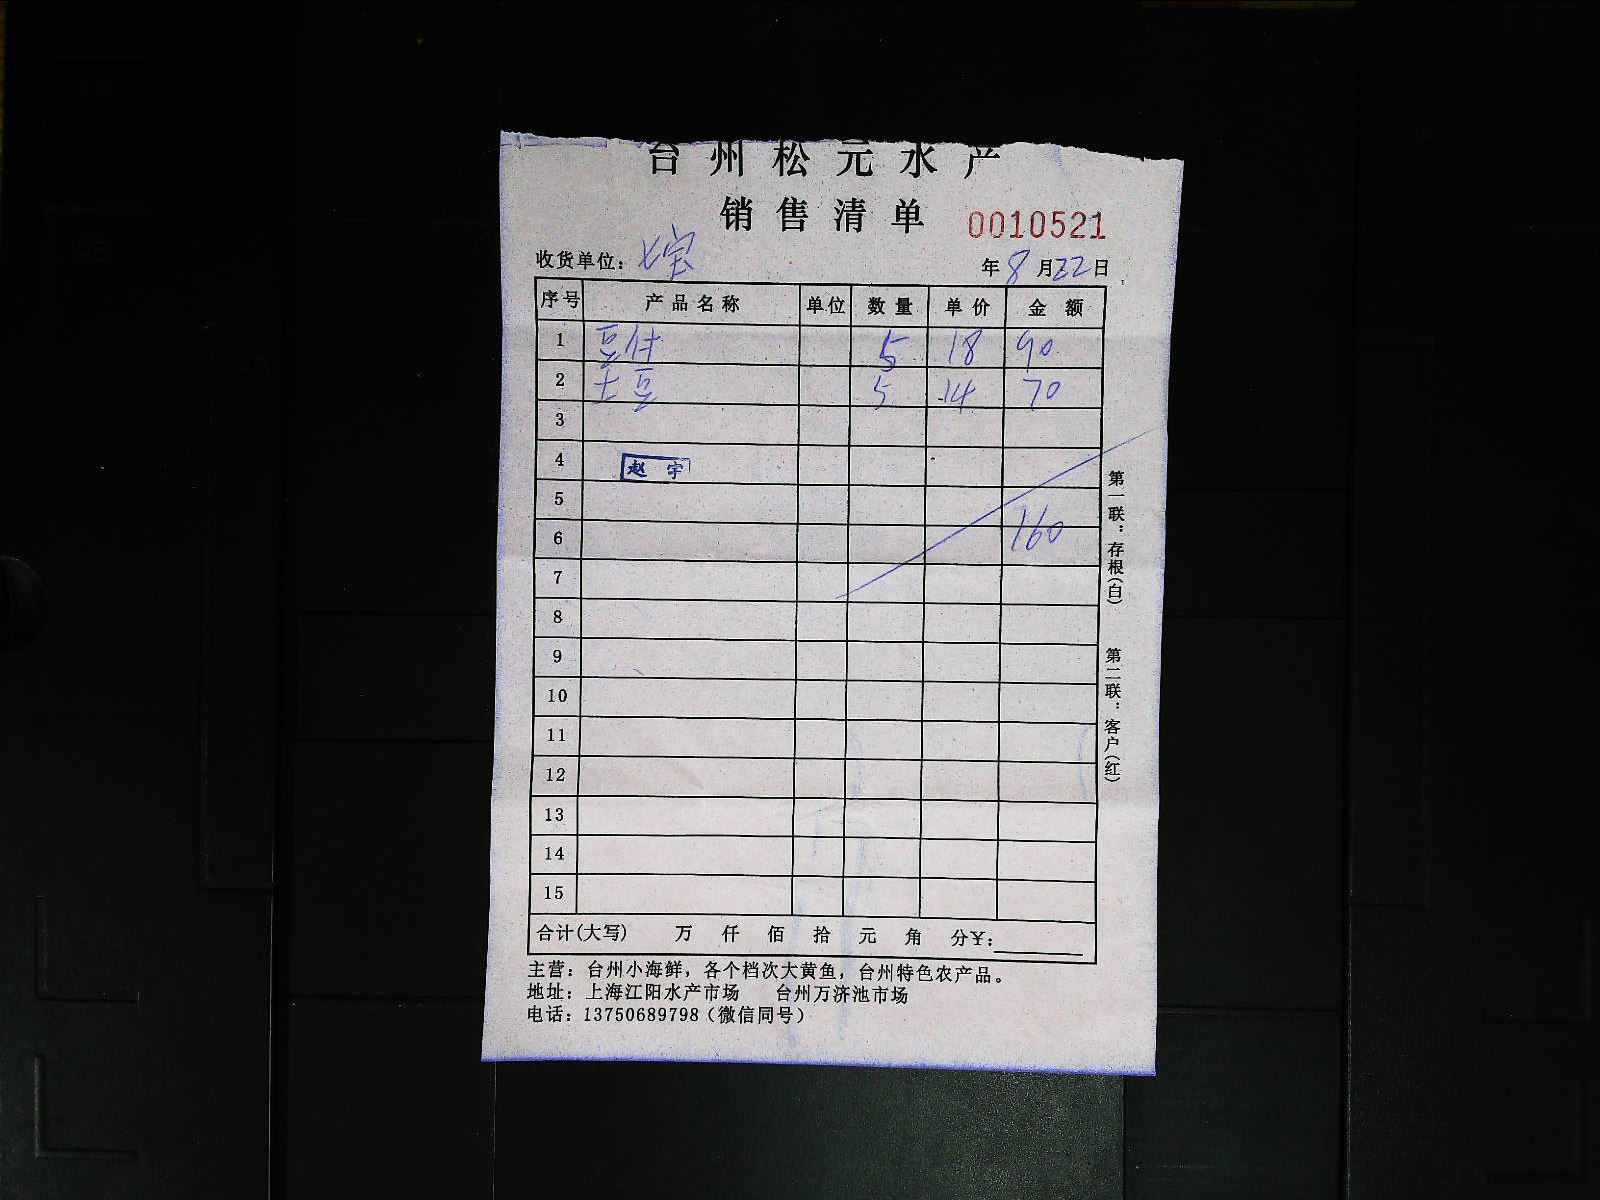 台州松元水产
销售清单 0010521
收货单位：七宝 年8月22日
序号 产品名称 单位 数量 单价 金额
1 豆付 5 18 90
2 土豆 5 14 70
3
4 赵宇
5
6 160
7
8
9
10
11
12
13
14
15
合计(大写) 万 仟 佰 拾 元 角 分¥：
主营：台州小海鲜，各个档次大黄鱼，台州特色农产品。
地址：上海江阳水产市场 台州万济池市场
电话：13750689798（微信同号）
第一联：存根(白)
第二联：客户(红)